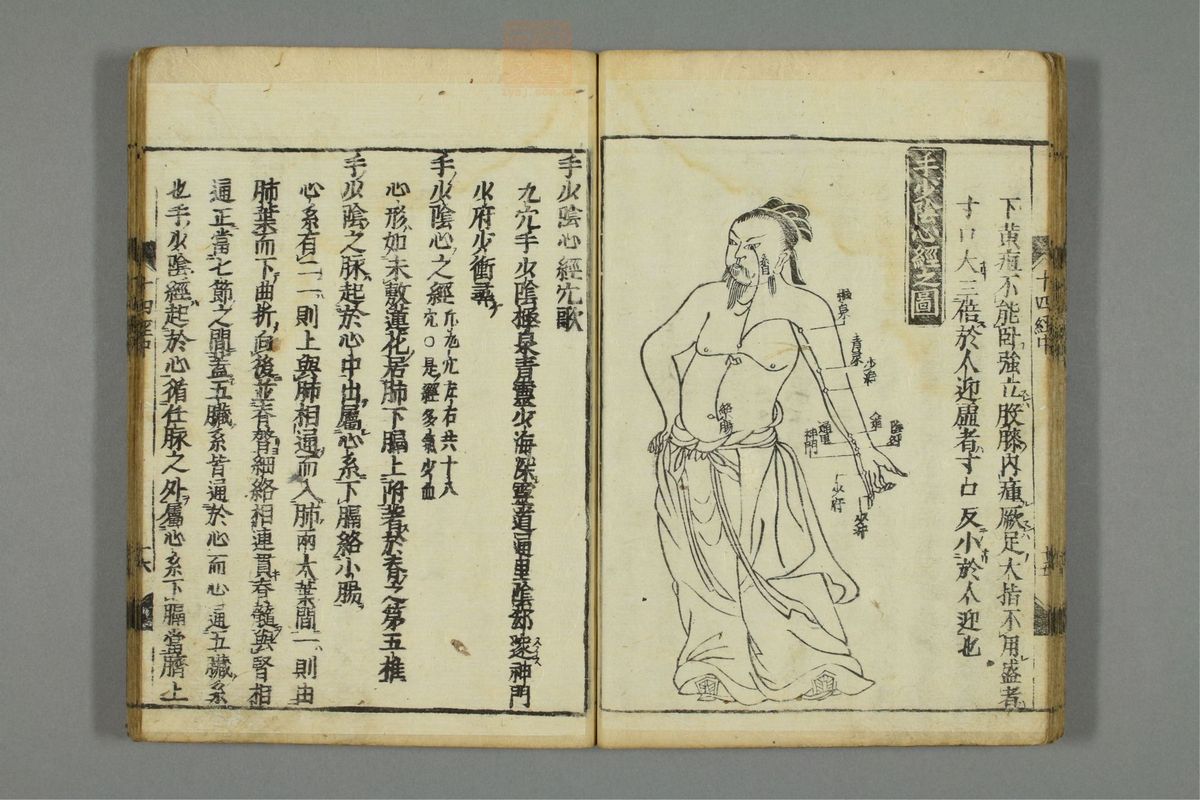 下黄疸不能臥強立股膝内痛厥足大指不用盛者
寸口大三倍於人迎虚者寸口反小於人迎也
手少陰心經之圖
極泉
青灵
少海
通里
神門
少府
十四經中
手少陰心經穴歌
九穴手少陰極泉青靈少海深靈道通里陰郄邃神門
少府少衝尋
手少陰心之經
凡九穴左右共十八
穴○是經多氣少血
心形如未敷蓮花居肺下膈上附著於脊之第五椎
手少陰之脉起於心中出屬心系下膈絡小腸
心系有二一則上與肺相通而入肺兩大葉間一則由
肺葉而下曲折向後並脊膂細絡相連貫脊髓與腎相
通正當七節之間蓋五臟系皆通於心而心通五臟系
也手少陰經起於心循任脉之外屬心系下膈當臍上
十四經中